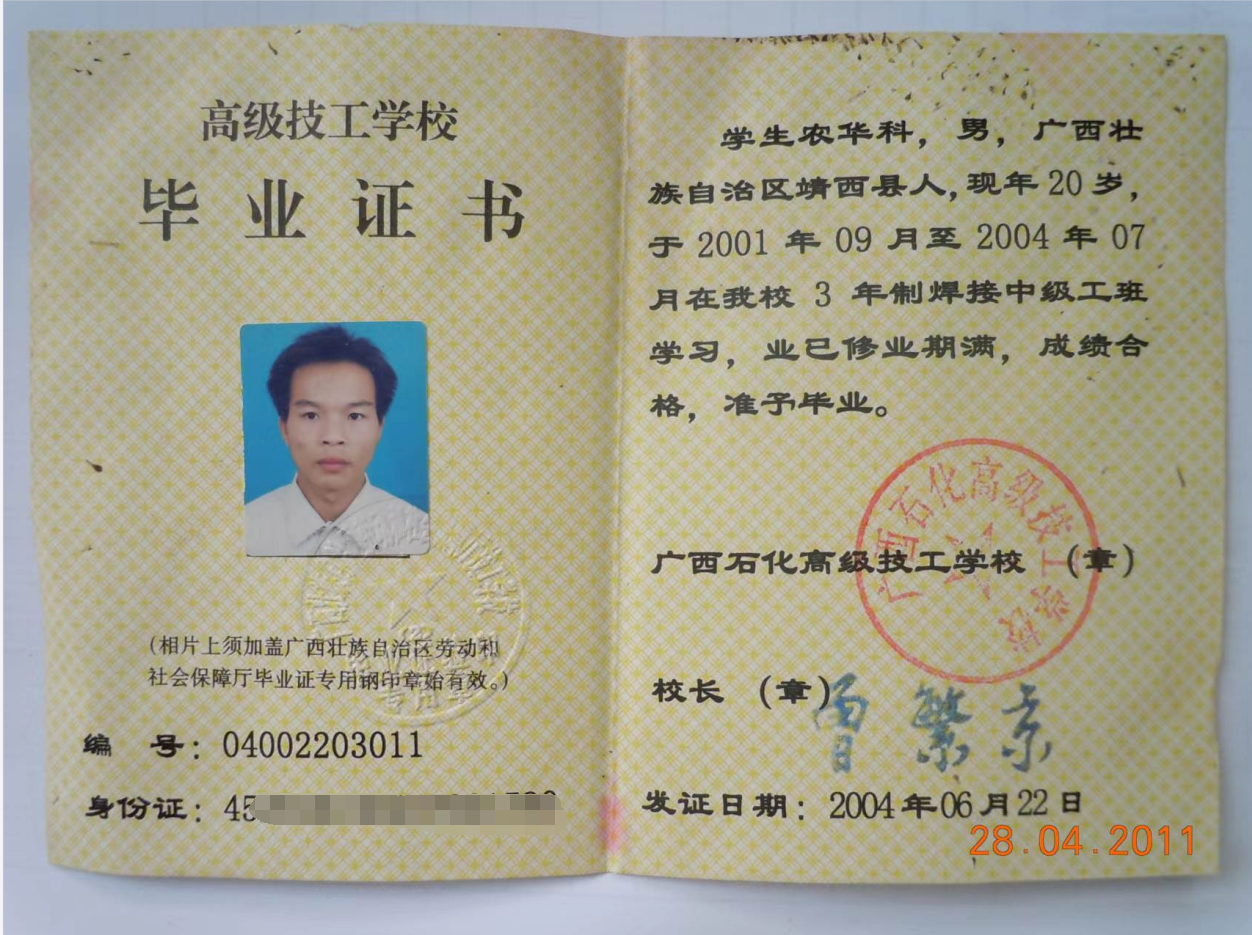 高级技工学校
毕业证书
(相片上须加盖广西壮族自治区劳动和
社会保障厅毕业证专用钢印章始有效。)
编 号：04002203011
身份证：45
学生农华科，男，广西壮
族自治区靖西县人，现年20岁，
于2001年09月至2004年07
月在我校3年制焊接中级工班
学习，业已修业期满，成绩合
格，准予毕业。
广西石化高级技工学校
广西石化高级技工学校 (章)
校长 (章)
曾繁京
发证日期：2004年06月22日
28.04.2011